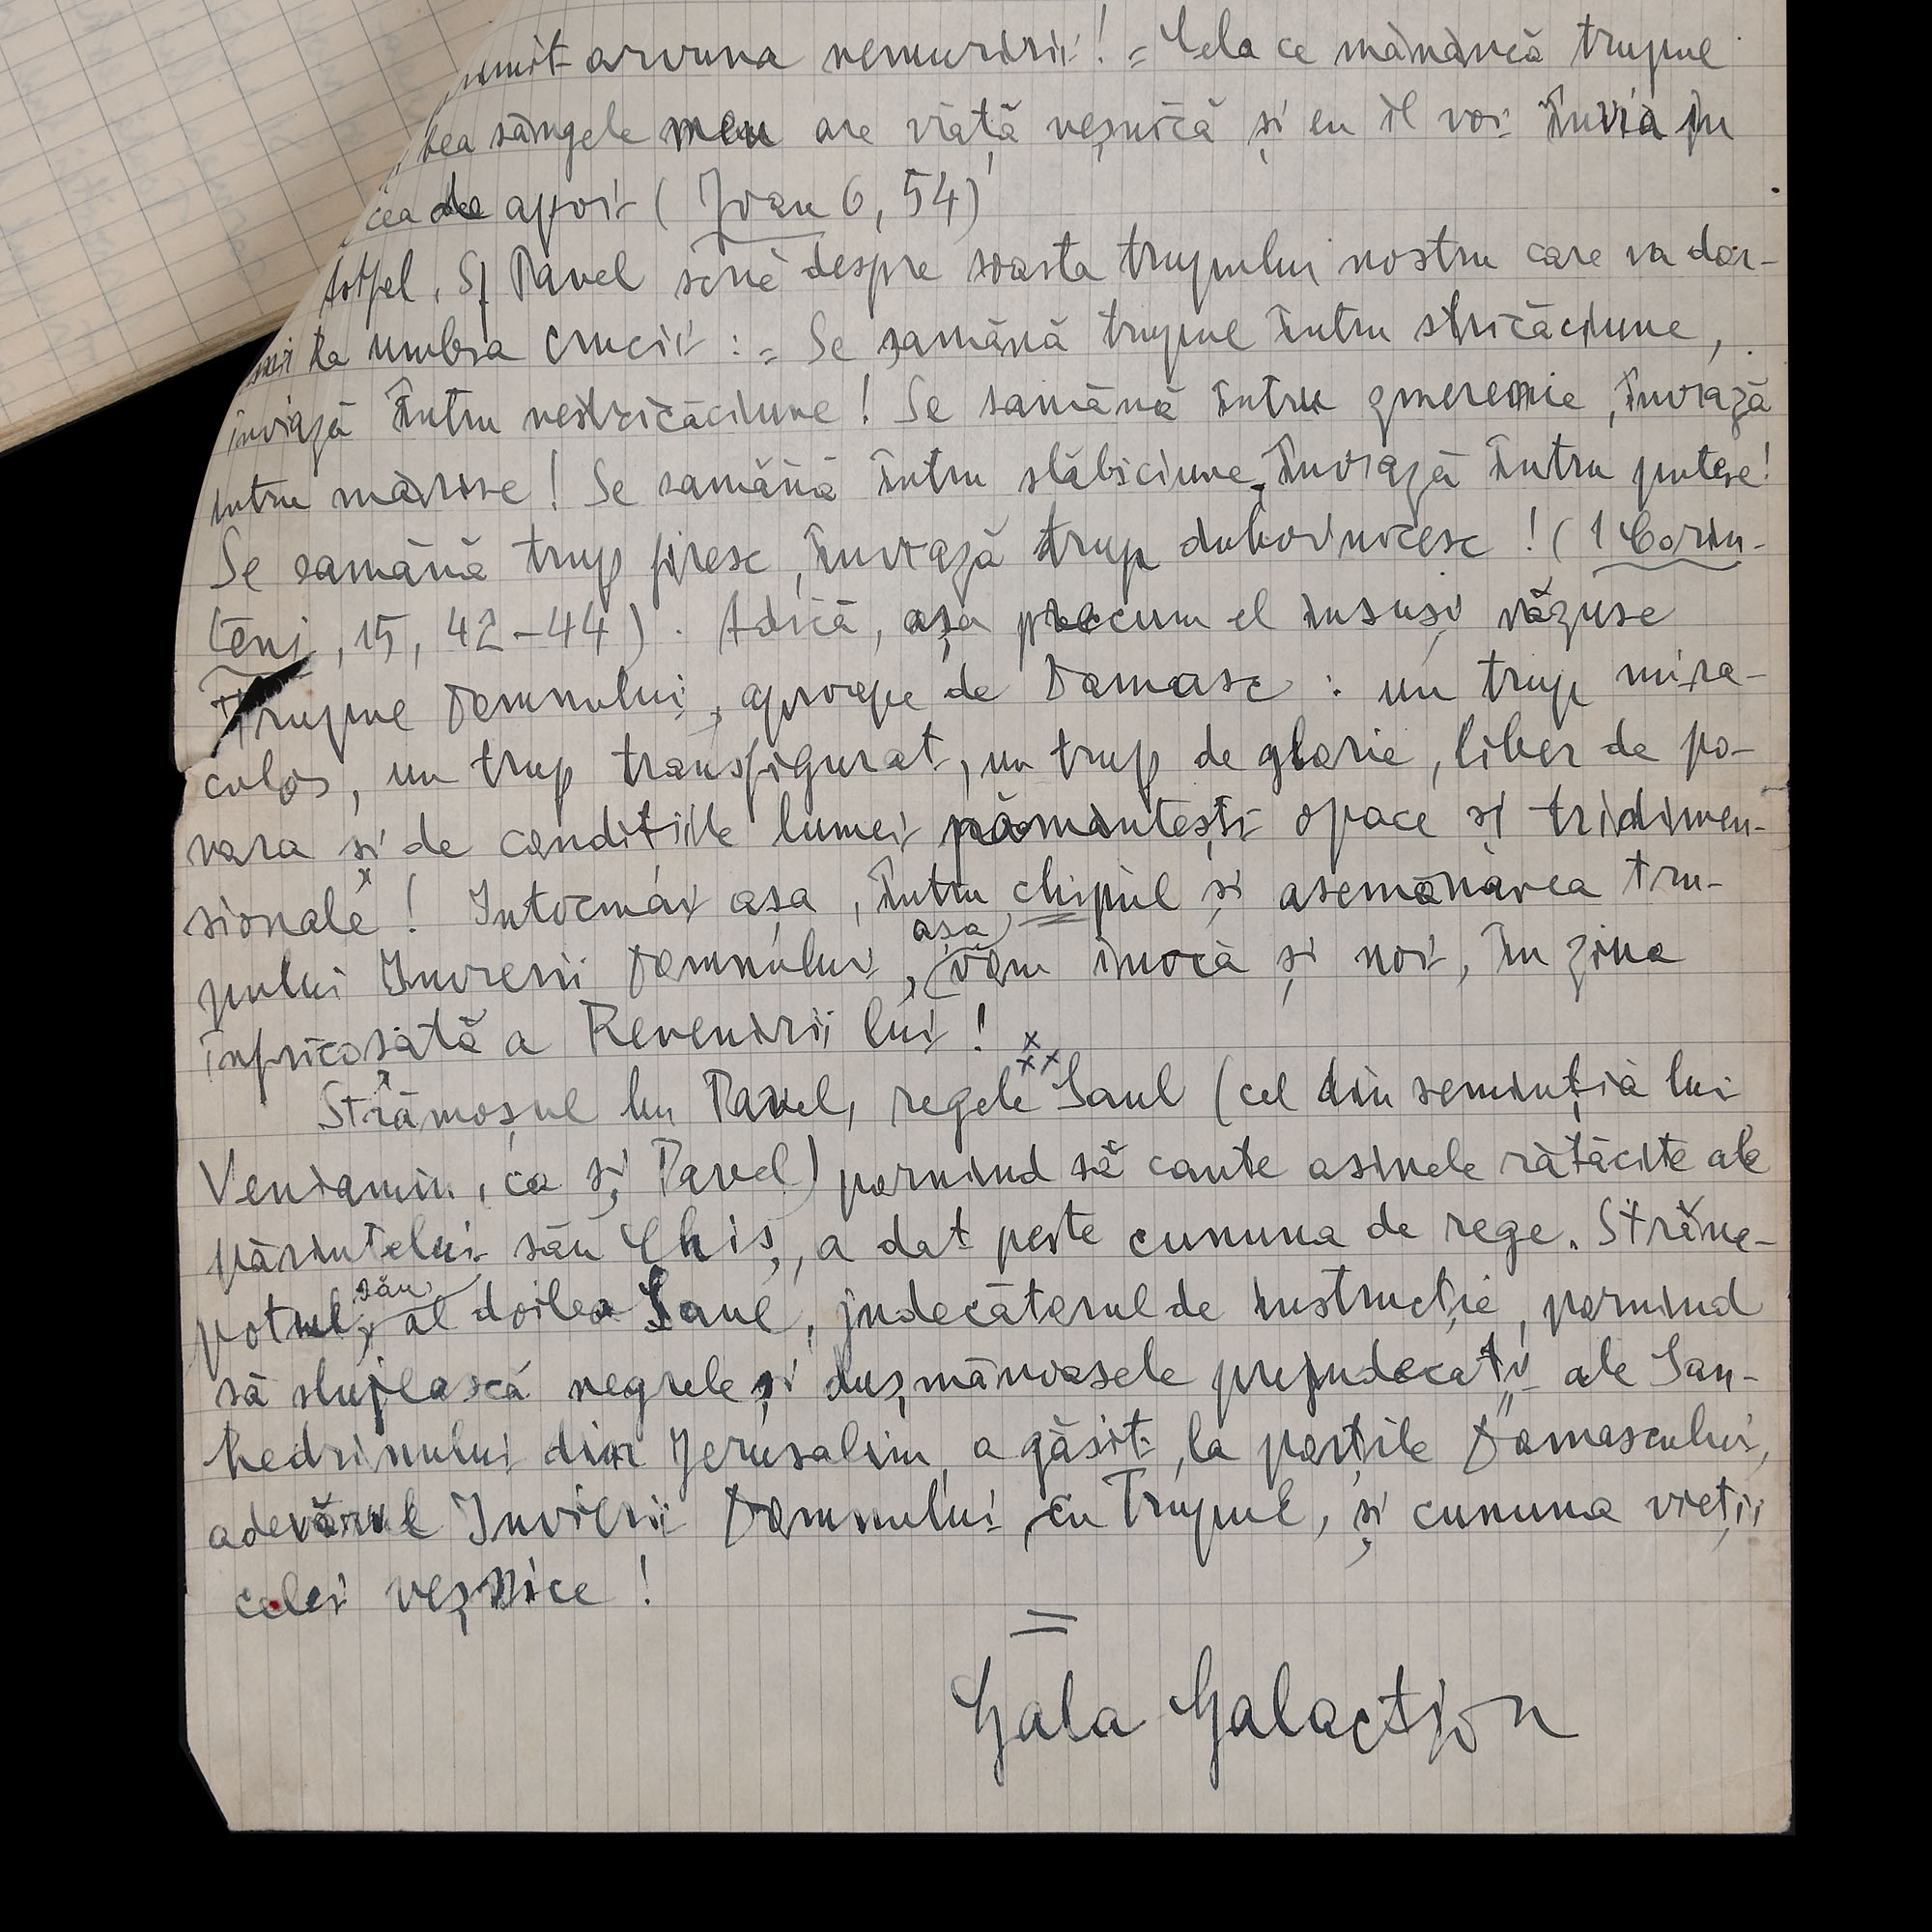 arvuna nemuririi! = Cela ce mănâncă trupul
bea sângele meu are viață veșnică și eu îl voi învia în
cea de apoi (Ioan 6, 54)
Astfel, Sf Pavel scrie despre soarta trupului nostru care va dor-
mi la umbra crucii: = Se samănă trupul întru stricăciune,
inviază întru nestricăciune! Se samănă întru zmerenie, înviază
intru mărire! Se samănă întru slăbiciune, înviază întru putere!
Se samănă trup firesc, înviază trup duhovnicesc! (1 Corin-
teni, 15, 42-44). Adică, așa precum el însuși văzuse
Trupul Domnului, aproape de Damasc: un trup mira-
culos, un trup transfigurat, un trup de glorie, liber de po-
vara și de condițiile lumei pământești opace și tridimen-
sionale! Intocmai așa, întru chipul și asemănarea tru-
pului Invierii Domnului, așa vom învia și noi, în ziua
înfricoșată a Revenirii lui!
x x x
Strămoșul lui Pavel, regele Saul (cel din seminția lui
Veniamin, ca și Pavel) pornind să caute asinele rătăcite ale
părintelui său Chiș, a dat peste cununa de rege. Străne-
potul său, al doilea Saul, judecătorul de instrucție, pornind
să slujească negrele și dușmănoasele prejudecăți ale San-
hedrinului din Jerusalim, a găsit, la porțile Damascului,
adevărul Invierii Domnului cu Trupul, și cununa vieții
celei veșnice!
Gala Galaction